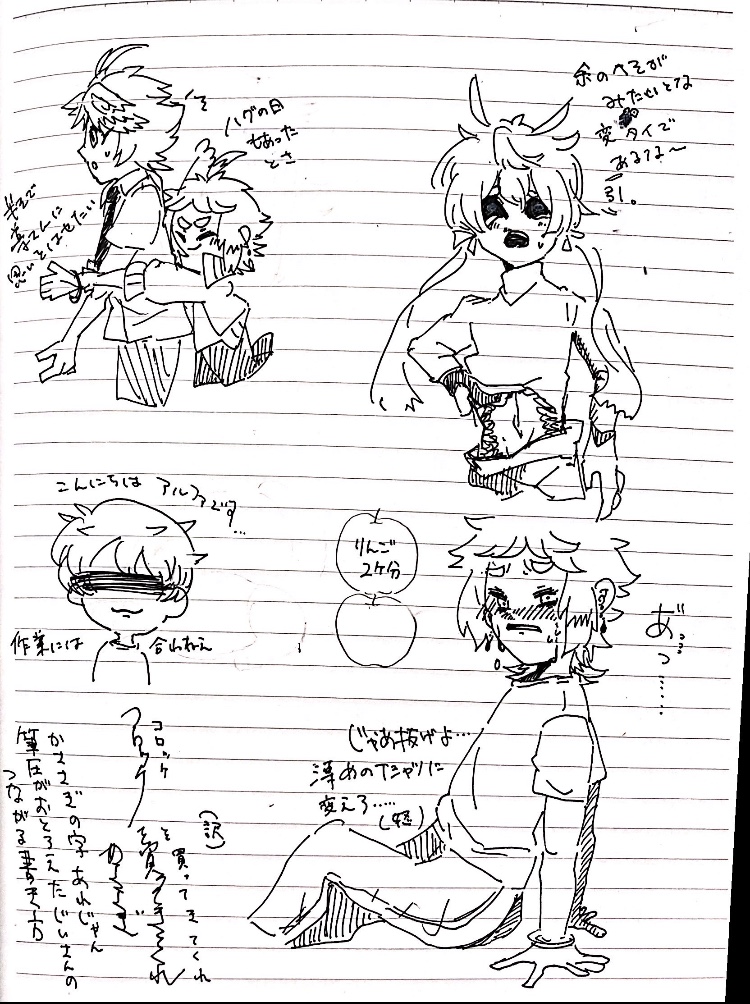 ハグの日
もあった
とさ
余のへそが
みたいとな
変タイで
あるな〜
引。
こんにちは アルファです…
作業には 合わねぇ
りんご
2ケ分
あ゛っ……
じゃあ抜げよ…
薄めのTシャツに
変えろ……(怒)
コロッケ
(訳)
を買ってきてくれ
かささぎの字 あれじゃん
筆圧がおとろえたじいさんの
つながる書き方